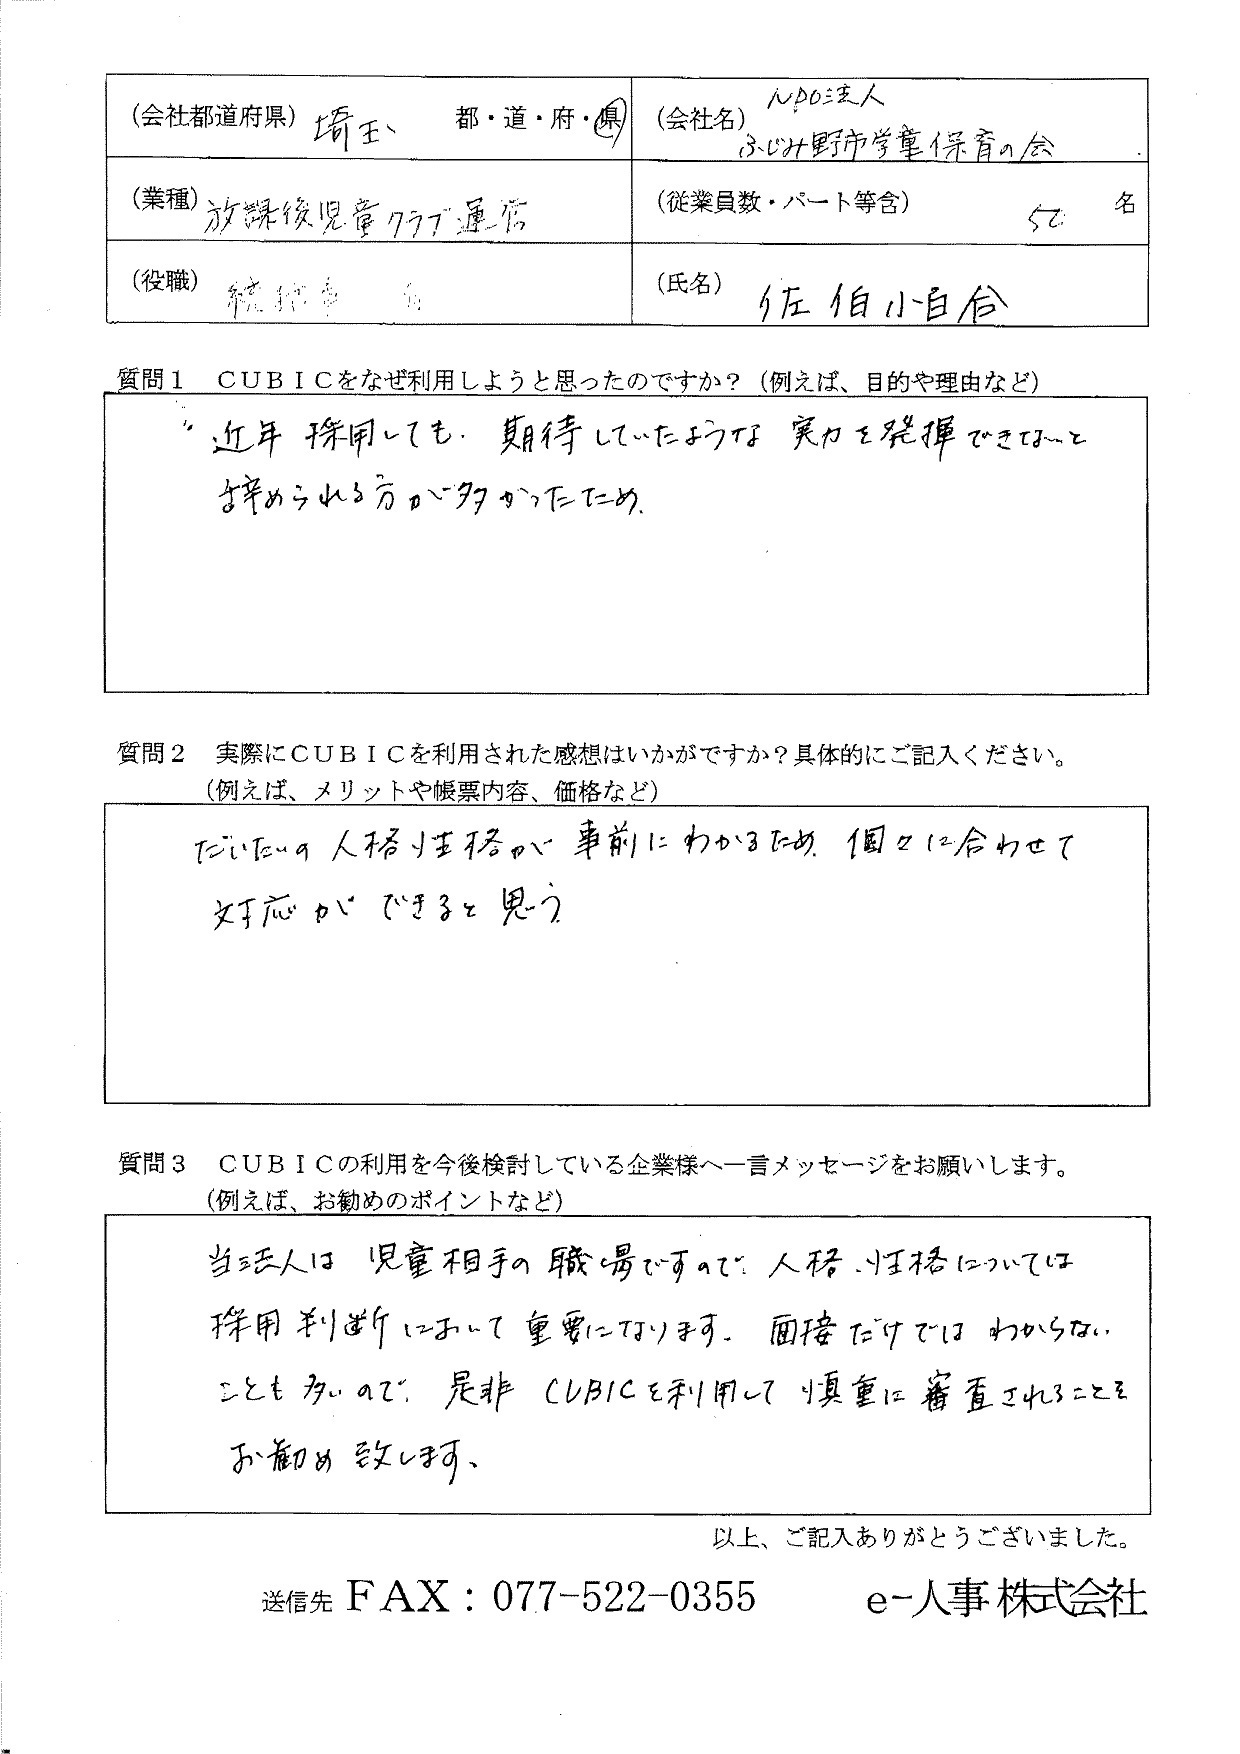 (会社都道府県) 埼玉 都・道・府・県
(会社名) NPO法人
ふじみ野市学童保育の会
(業種) 放課後児童クラブ運営
(従業員数・パート等含) 50 名
(役職)
(氏名) 佐伯小百合
質問1 CUBICをなぜ利用しようと思ったのですか？(例えば、目的や理由など)
近年 採用しても. 期待していたような 実力を発揮できないと
辞められる方が多かったため.
質問2 実際にCUBICを利用された感想はいかがですか？具体的にご記入ください。
(例えば、メリットや帳票内容、価格など)
だいたいの 人格性格が 事前に わかるため. 個々に合わせて
対応が できると 思う.
質問3 CUBICの利用を今後検討している企業様へ一言メッセージをお願いします。
(例えば、お勧めのポイントなど)
当法人は 児童相手の 職場ですので. 人格、性格については
採用判断において 重要になります. 面接だけでは わからない
ことも 多いので. 是非 CUBICを利用して 慎重に 審査されることを
お勧め 致します、
以上、ご記入ありがとうございました。
送信先 FAX：077-522-0355 e-人事株式会社